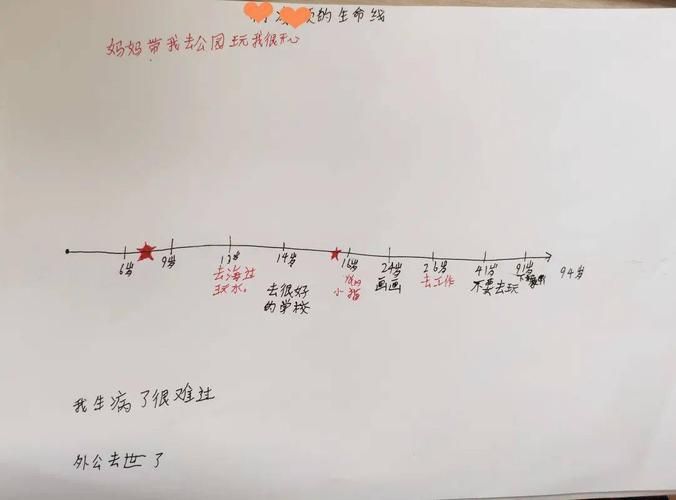 的生命线
妈妈带我去公园玩我很开心
6岁 9岁 13岁 14岁 16岁 24岁 26岁 41岁 91岁 94岁
去海边
玩水
去很好
的学校
小猫
画画
去工作
不要去玩
我生病了很难过
外公去世了